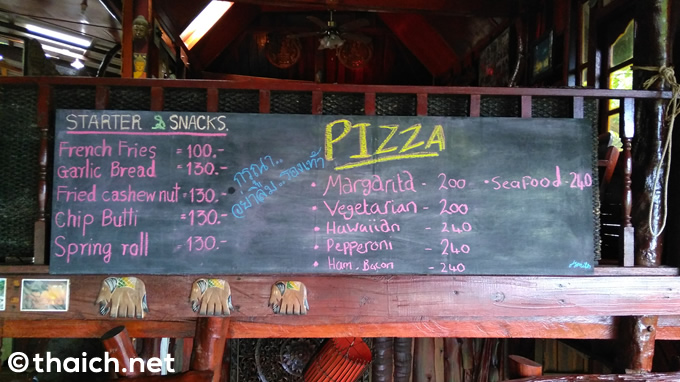 STARTER & SNACKS.
French Fries = 100.-
Garlic Bread = 130.-
Fried cashew nut = 130.-
Chip Butti = 130.-
Spring roll = 130.-
กรุณา..
อย่าลืม..รองเท้า
PIZZA
• Margarita - 200
• Vegetarian - 200
• Hawaiian - 240
• Pepperoni - 240
• Ham.Bacon - 240
• Seafood - 240
©thaich.net